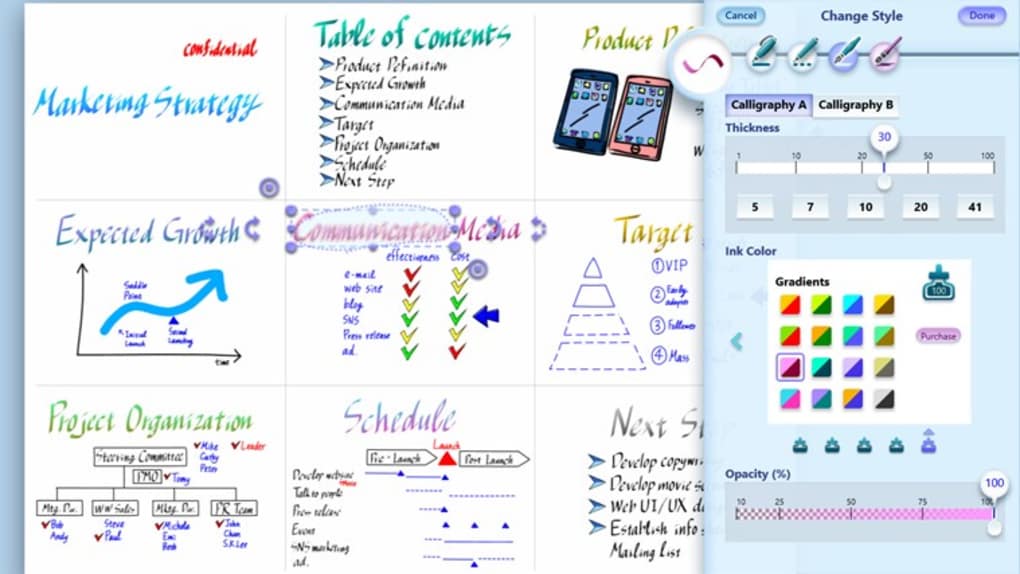 confidential
Marketing Strategy
Table of Contents
Product Definition
Expected Growth
Communication Media
Target
Project Organization
Schedule
Next Step
Product
Expected Growth
Saddle
Point
Initial
Launch
Second
Launching
time
Communication Media
effectiveness cost
e-mail
web site
blog
SNS
Press release
ad.
Target
① VIP
② Early
adopter
③ Follower
④ Mass
Project Organization
Steering Committee
Mike
Cathy
Peter
Leader
PMO
Tomy
Mtg. Div.
WW Sales
Mktg. Div.
PR Team
Bob
Andy
Steve
Paul
Michelle
Eric
Beth
John
Chan
S.K.Lee
Schedule
Launch
Pre-Launch
Post Launch
Develop website
Talk to people
Press release
Event
SNS marketing
ad.
Next
Develop
Develop movie
Web UI/UX
Establish info
Mailing list
Cancel
Change Style
Done
Calligraphy A
Calligraphy B
Thickness
30
1 10 20 50 100
5 7 10 20 41
Ink Color
Gradients
100
Purchase
Opacity (%)
100
10 25 50 75